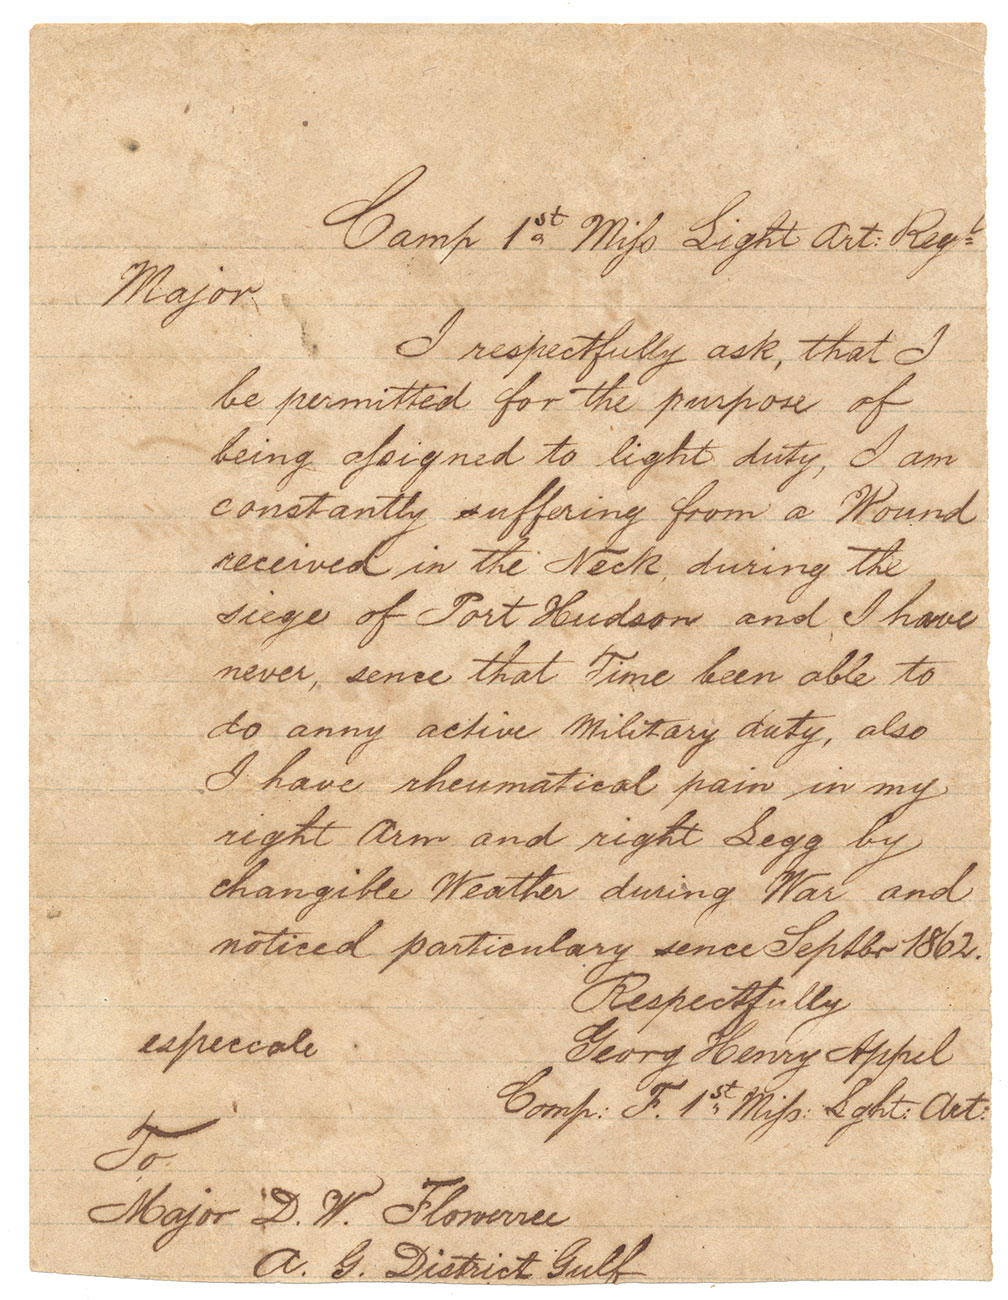 Camp 1st Miss Light Art: Regt
Major
I respectfully ask, that I
be permitted for the purpose of
being assigned to light duty, I am
constantly suffering from a Wound
received in the Neck, during the
siege of Port Hudson and I have
never, sence that Time been able to
do anny active Military duty, also
I have rheumatical pain in my
right Arm and right Legg by
changible Weather during War and
noticed particulary sence Septbr 1862.
Respectfully
especcale Georg Henry Appel
Comp: F. 1st Miss: Lght: Art:
To
Major D. W. Flowerree
A. G. District Gulf